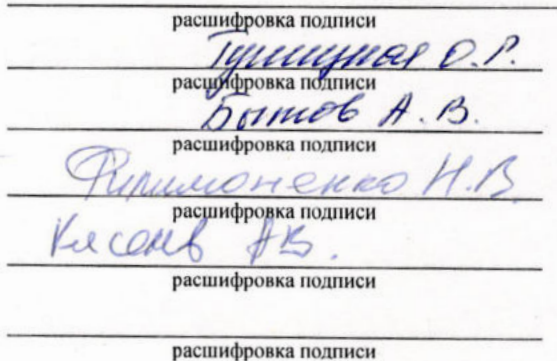 расшифровка подписи
О.Р.
расшифровка подписи
Бытов А.В.
расшифровка подписи
Филимоненко Н.В.
расшифровка подписи
А.В.
расшифровка подписи
расшифровка подписи